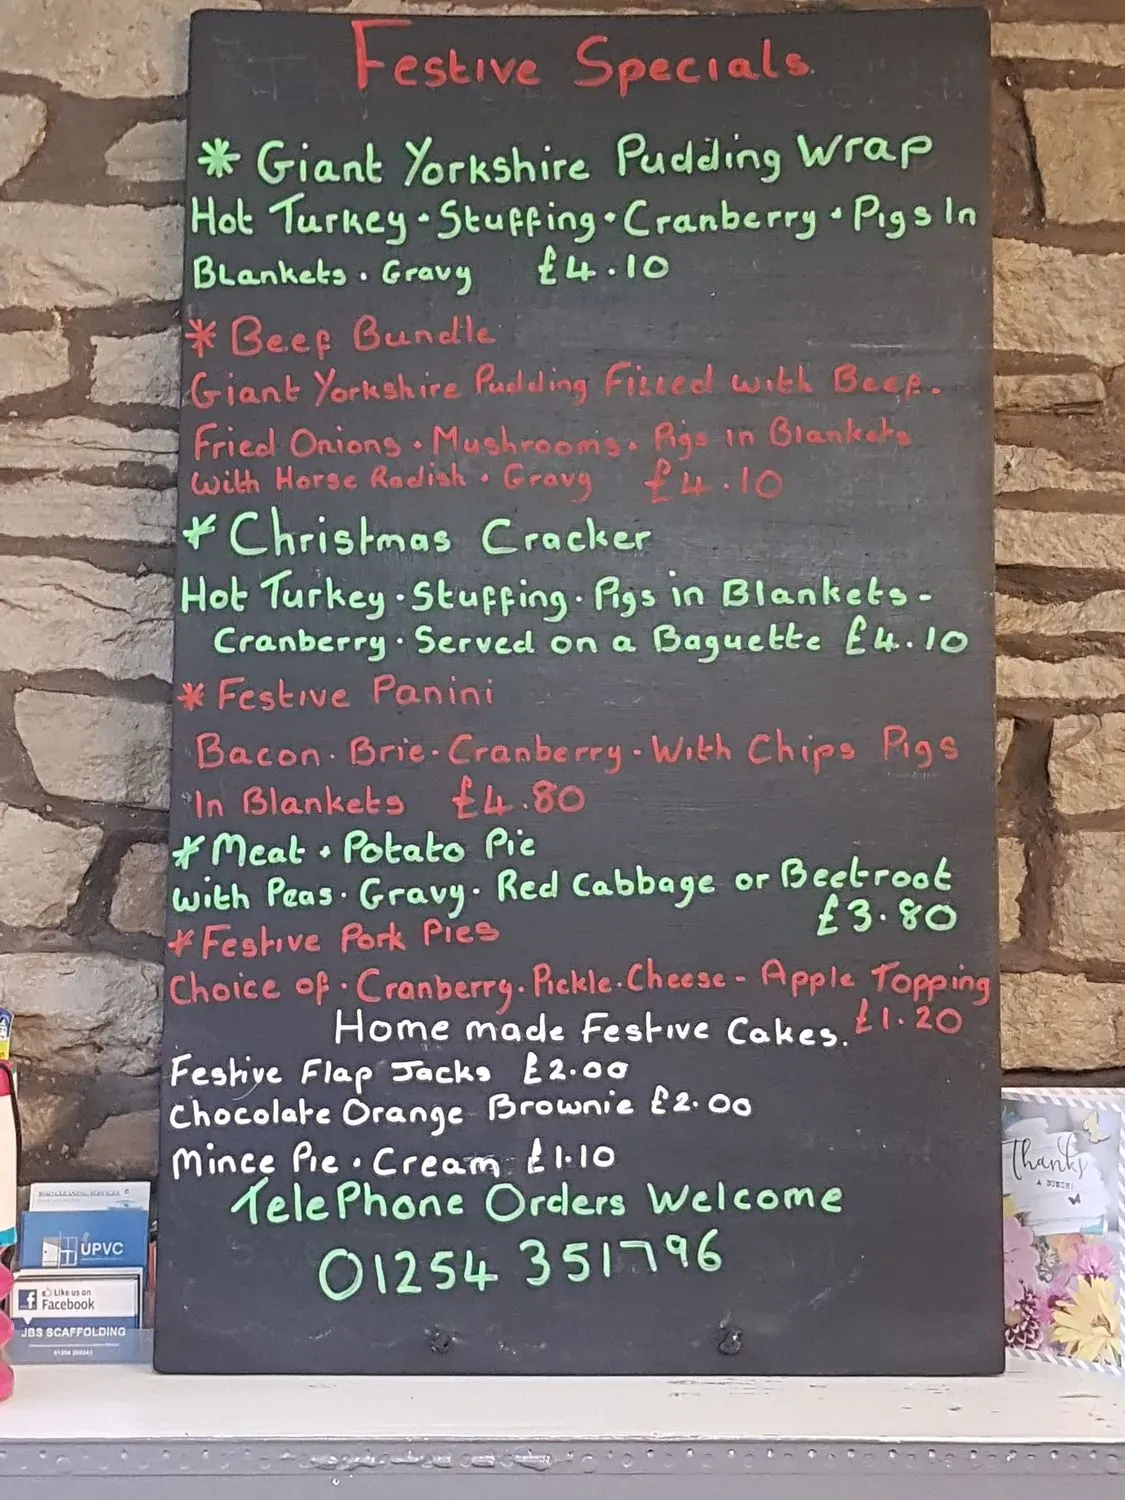 Festive Specials.
* Giant Yorkshire Pudding Wrap
Hot Turkey · Stuffing · Cranberry · Pigs In
Blankets · Gravy £4.10
* Beef Bundle
Giant Yorkshire Pudding Filled with Beef.
Fried Onions · Mushrooms · Pigs in Blankets
with Horse Radish · Gravy £4.10
* Christmas Cracker
Hot Turkey · Stuffing · Pigs in Blankets -
Cranberry · Served on a Baguette £4.10
* Festive Panini
Bacon · Brie · Cranberry · With Chips Pigs
In Blankets £4.80
* Meat · Potato Pie
with Peas · Gravy · Red Cabbage or Beetroot
£3.80
* Festive Pork Pies
Choice of · Cranberry · Pickle · Cheese - Apple Topping
£1.20
Home made Festive Cakes.
Festive Flap Jacks £2.00
Chocolate Orange Brownie £2.00
Mince Pie · Cream £1.10
TelePhone Orders Welcome
01254 351796
UPVC
Like us on
Facebook
JBS SCAFFOLDING
Thanks
A BUNCH!